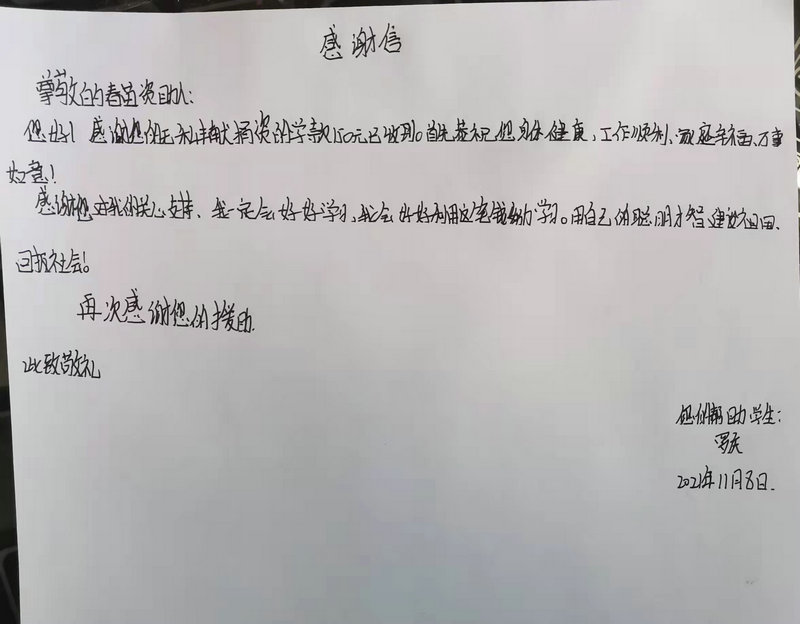 感谢信
尊敬的春苗资助人:
您好! 感谢您的无私奉献捐资的学款150元已收到。首先想祝您身体健康,工作顺利、家庭幸福、万事
如意!
感谢您对我的关心支持、我一定会好好学习,我会好好利用这笔钱努力学习。用自己的聪明才智建设祖国、
回报社会!
再次感谢您的援助.
此致敬礼
您的帮助学生:
2021年11月8日.